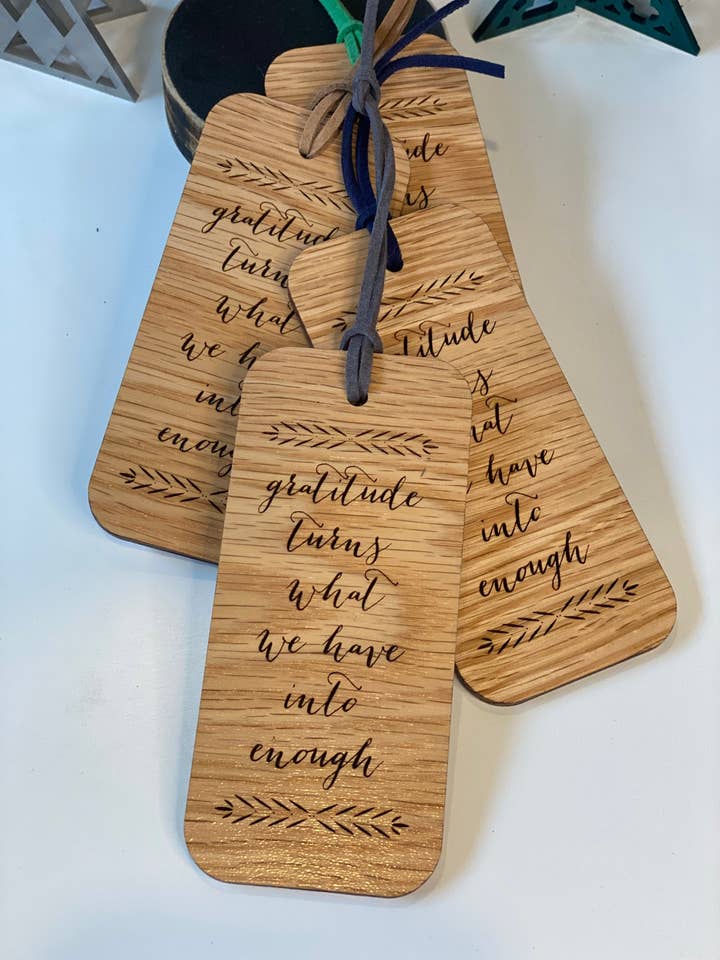 gratitude
turns
what
we have
into
enough
gratitude
turns
what
we h
into
enoug
titude
s
hat
have
into
enough
ude
ns